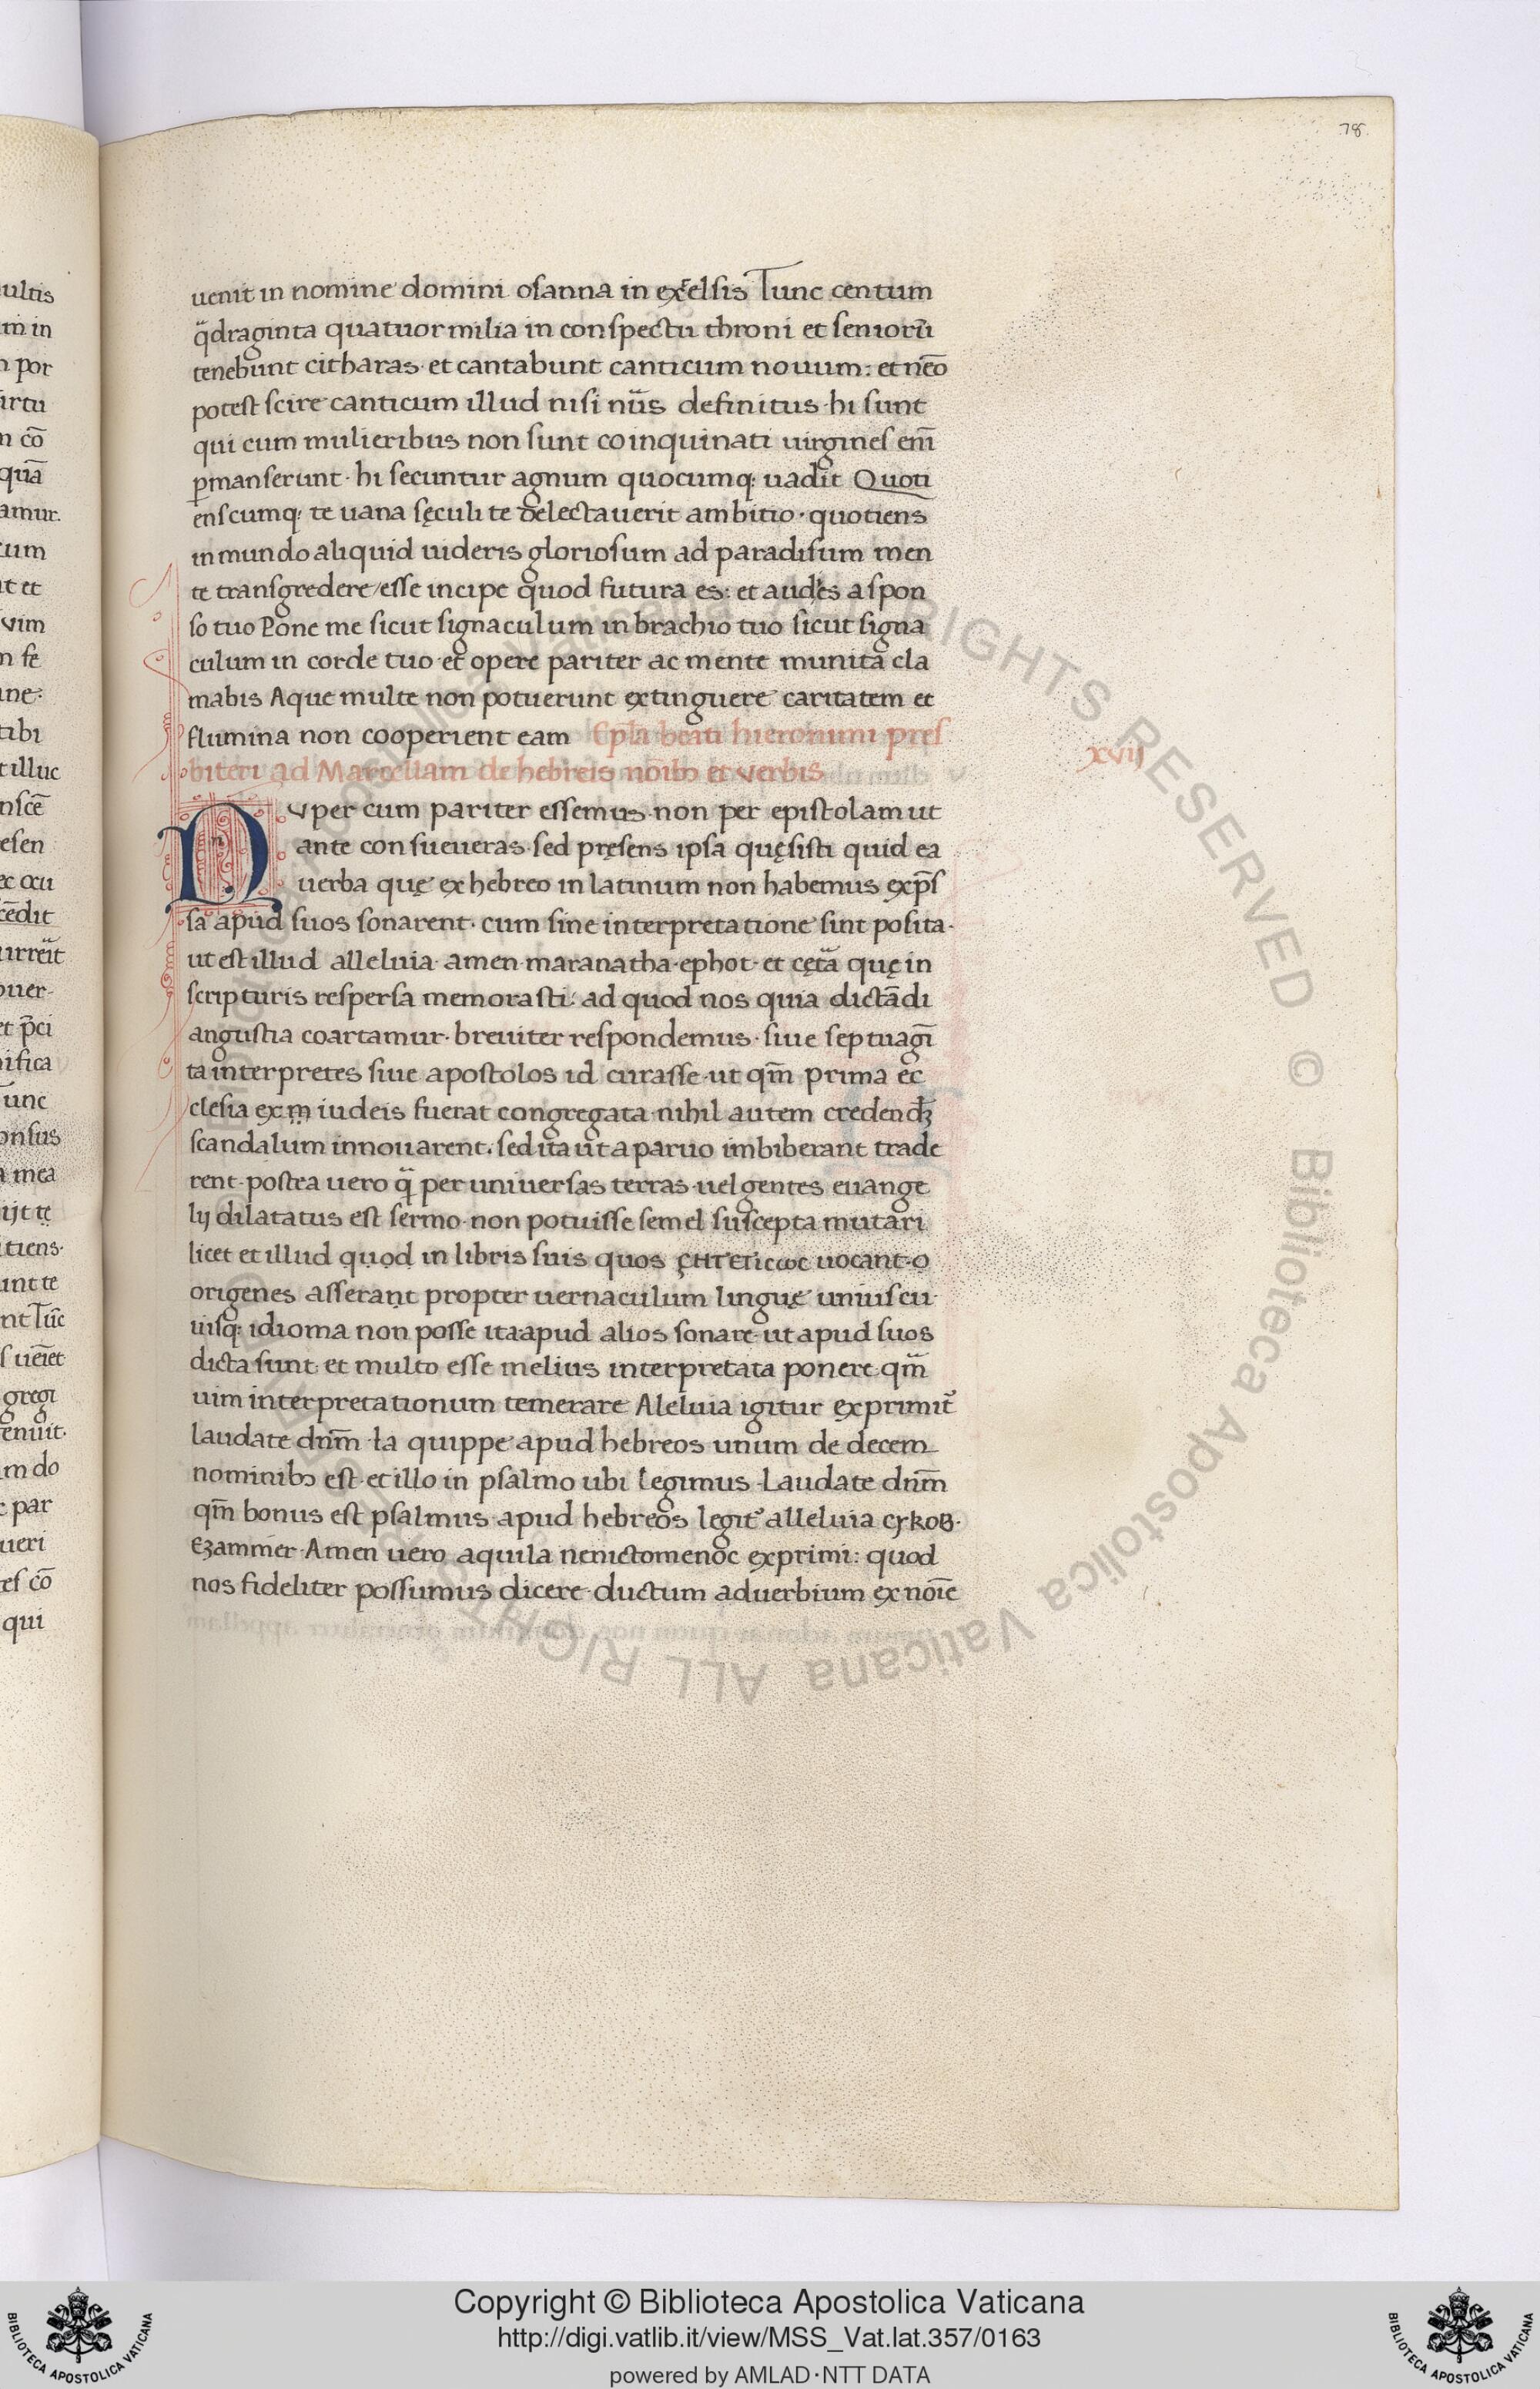 78
uenit in nomine domini osanna in excelsis Tunc centum
q̈draginta quatuor milia in conspectu throni et senioru̅
tenebunt citharas· et cantabunt canticum nouum: et neo̅
potest scire canticum illud nisi nu̅s definitus· hi sunt
qui cum mulieribus non sunt coinquinati uirgines eni̅
ꝑmanserunt· hi secuntur agnum quocumq: uadit Quoti
enscumq: te uana sęculi te delectauerit ambitio· quotiens
in mundo aliquid uideris gloriosum ad paradisum men
te transgredere/esse incipe quod futura es: et audies a spon
so tuo Pone me sicut signaculum in brachio tuo sicut signa
culum in corde tuo· et opere pariter ac mente munita cla
mabis Aque multe non potuerunt extinguere caritatem et
flumina non cooperient eam Ep̅la beati hieronimi pres
biteri ad Marcellam de hebreis noi̅bꝫ et verbis
xvij
Nvper cum pariter essemus· non per epistolam ut
ante consueueras· sed pręsens ipsa quęsisti quid ea
uerba quę ex hebreo in latinum non habemus exp̅s
sa apud suos sonarent· cum sine interpretatione sint posita·
ut est illud alleluia· amen· maranatha· ephot· et cęta̅ quę in
scripturis respersa memorasti: ad quod nos quia dicta̅di
angustia coartamur· breuiter respondemus· siue septuagi̅
ta interpretes siue apostolos id curasse· ut qm̅ prima ec
clesia ex m iudeis fuerat congregata· nihil autem credendꝫ
scandalum innouarent· sed ita ut a paruo imbiberant trade
rent· postea uero q̈ per uniuersas terras· uel gentes euange
lij dilatatus est sermo· non potuisse semel suscepta mutari
licet et illud quod in libris suis quos ϛΗΓΕΤΙCωC uocant· o
origenes asserant propter uernaculum linguę uniuscu
uisq: idioma non posse ita apud alios sonare· ut apud suos
dicta sunt· et multo esse melius interpretata ponere qm̅
uim interpretationum temerare Aleluia igitur exprimit᷑
laudate dnm̅· ia quippe apud hebreos unum de decem
nominibꝫ est· et illo in psalmo ubi legimus· Laudate dnm̅
qm̅ bonus est psalmus· apud hebreos legit᷑ alleluia cykoB·
Ezammer· Amen uero aquila nenictomenoc exprimi: quod
nos fideliter possumus dicere· ductum aduerbium ex noi̅e
ultis
m in
por
irtu
co̅
qua̅
amur.
cum
it et
vim
n fe
ne:
tibi
t illuc
nsce̅
esen
ec ocu
ce̅dit
urreit
ouer-
et p̅ci
nifica
unc
onsus
mea
ijt te
tiens·
unt te
nt Tu̅c
s uei̅et
gregi
enuit·
m do
par
ueri
es co̅
qui
© Biblioteca Apostolica Vaticana ALL RIGHTS RESERVED
Copyright © Biblioteca Apostolica Vaticana
http://digi.vatlib.it/view/MSS_Vat.lat.357/0163
powered by AMLAD·NTT DATA
BIBLIOTECA APOSTOLICA VATICANA
BIBLIOTECA APOSTOLICA VATICANA